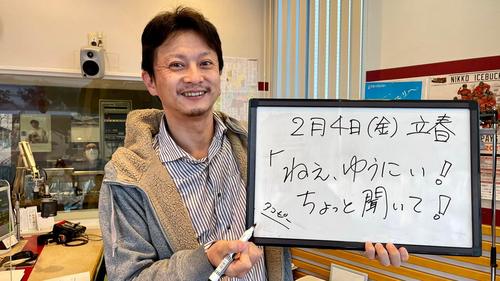 2月4日(金) 立春
「ねぇ、ゆうにい!
ちょっと聞いて!
NIKKO ICEBUCK